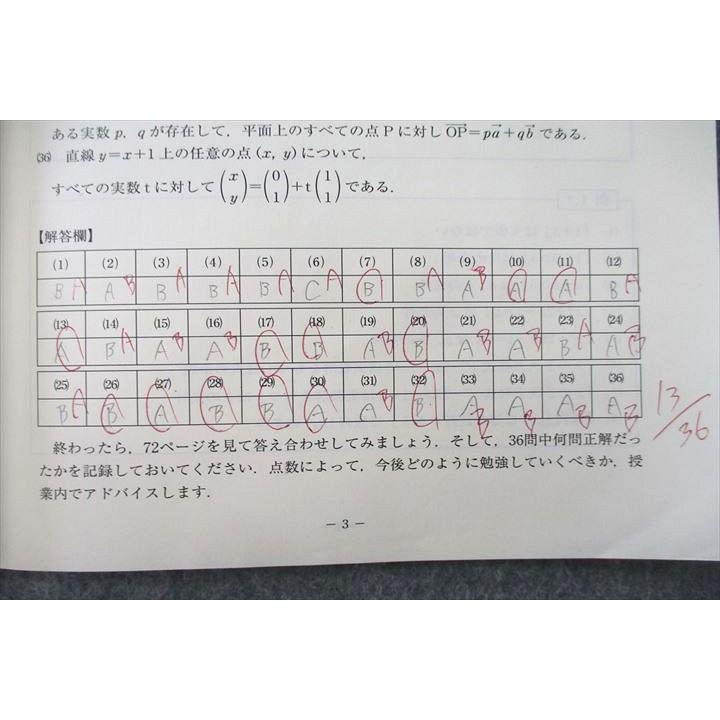 ある実数 p, q が存在して，平面上のすべての点 P に対し OP=pa+qb である．
(36) 直線 y=x+1 上の任意の点 (x, y) について，
すべての実数 t に対して (x y)=(0 1)+t(1 1) である．
【解答欄】
(1) (2) (3) (4) (5) (6) (7) (8) (9) (10) (11) (12)
B A A B B A B A B A C A B B A A B A A B A
(13) (14) (15) (16) (17) (18) (19) (20) (21) (22) (23) (24)
A B A A B A B B B A B B A B A B B A A B
(25) (26) (27) (28) (29) (30) (31) (32) (33) (34) (35) (36)
B A B A B B A A B B A B A B A B A B
13/36
終わったら，72ページを見て答え合わせしてみましょう．そして，36問中何問正解だっ
たかを記録しておいてください．点数によって，今後どのように勉強していくべきか，授
業内でアドバイスします．
− 3 −